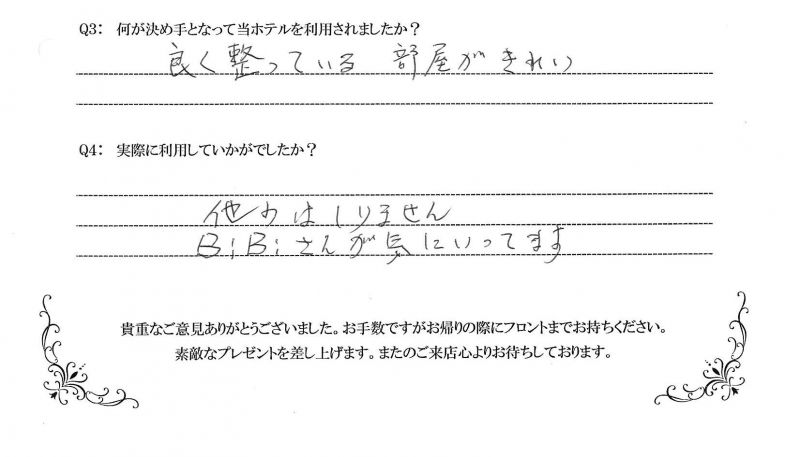 Q3: 何が決め手となって当ホテルを利用されましたか？
良く整っている 部屋がきれい
Q4: 実際に利用していかがでしたか？
他のはしりません
B;B;さんが気にいってます
貴重なご意見ありがとうございました。お手数ですがお帰りの際にフロントまでお持ちください。
素敵なプレゼントを差し上げます。またのご来店心よりお待ちしております。